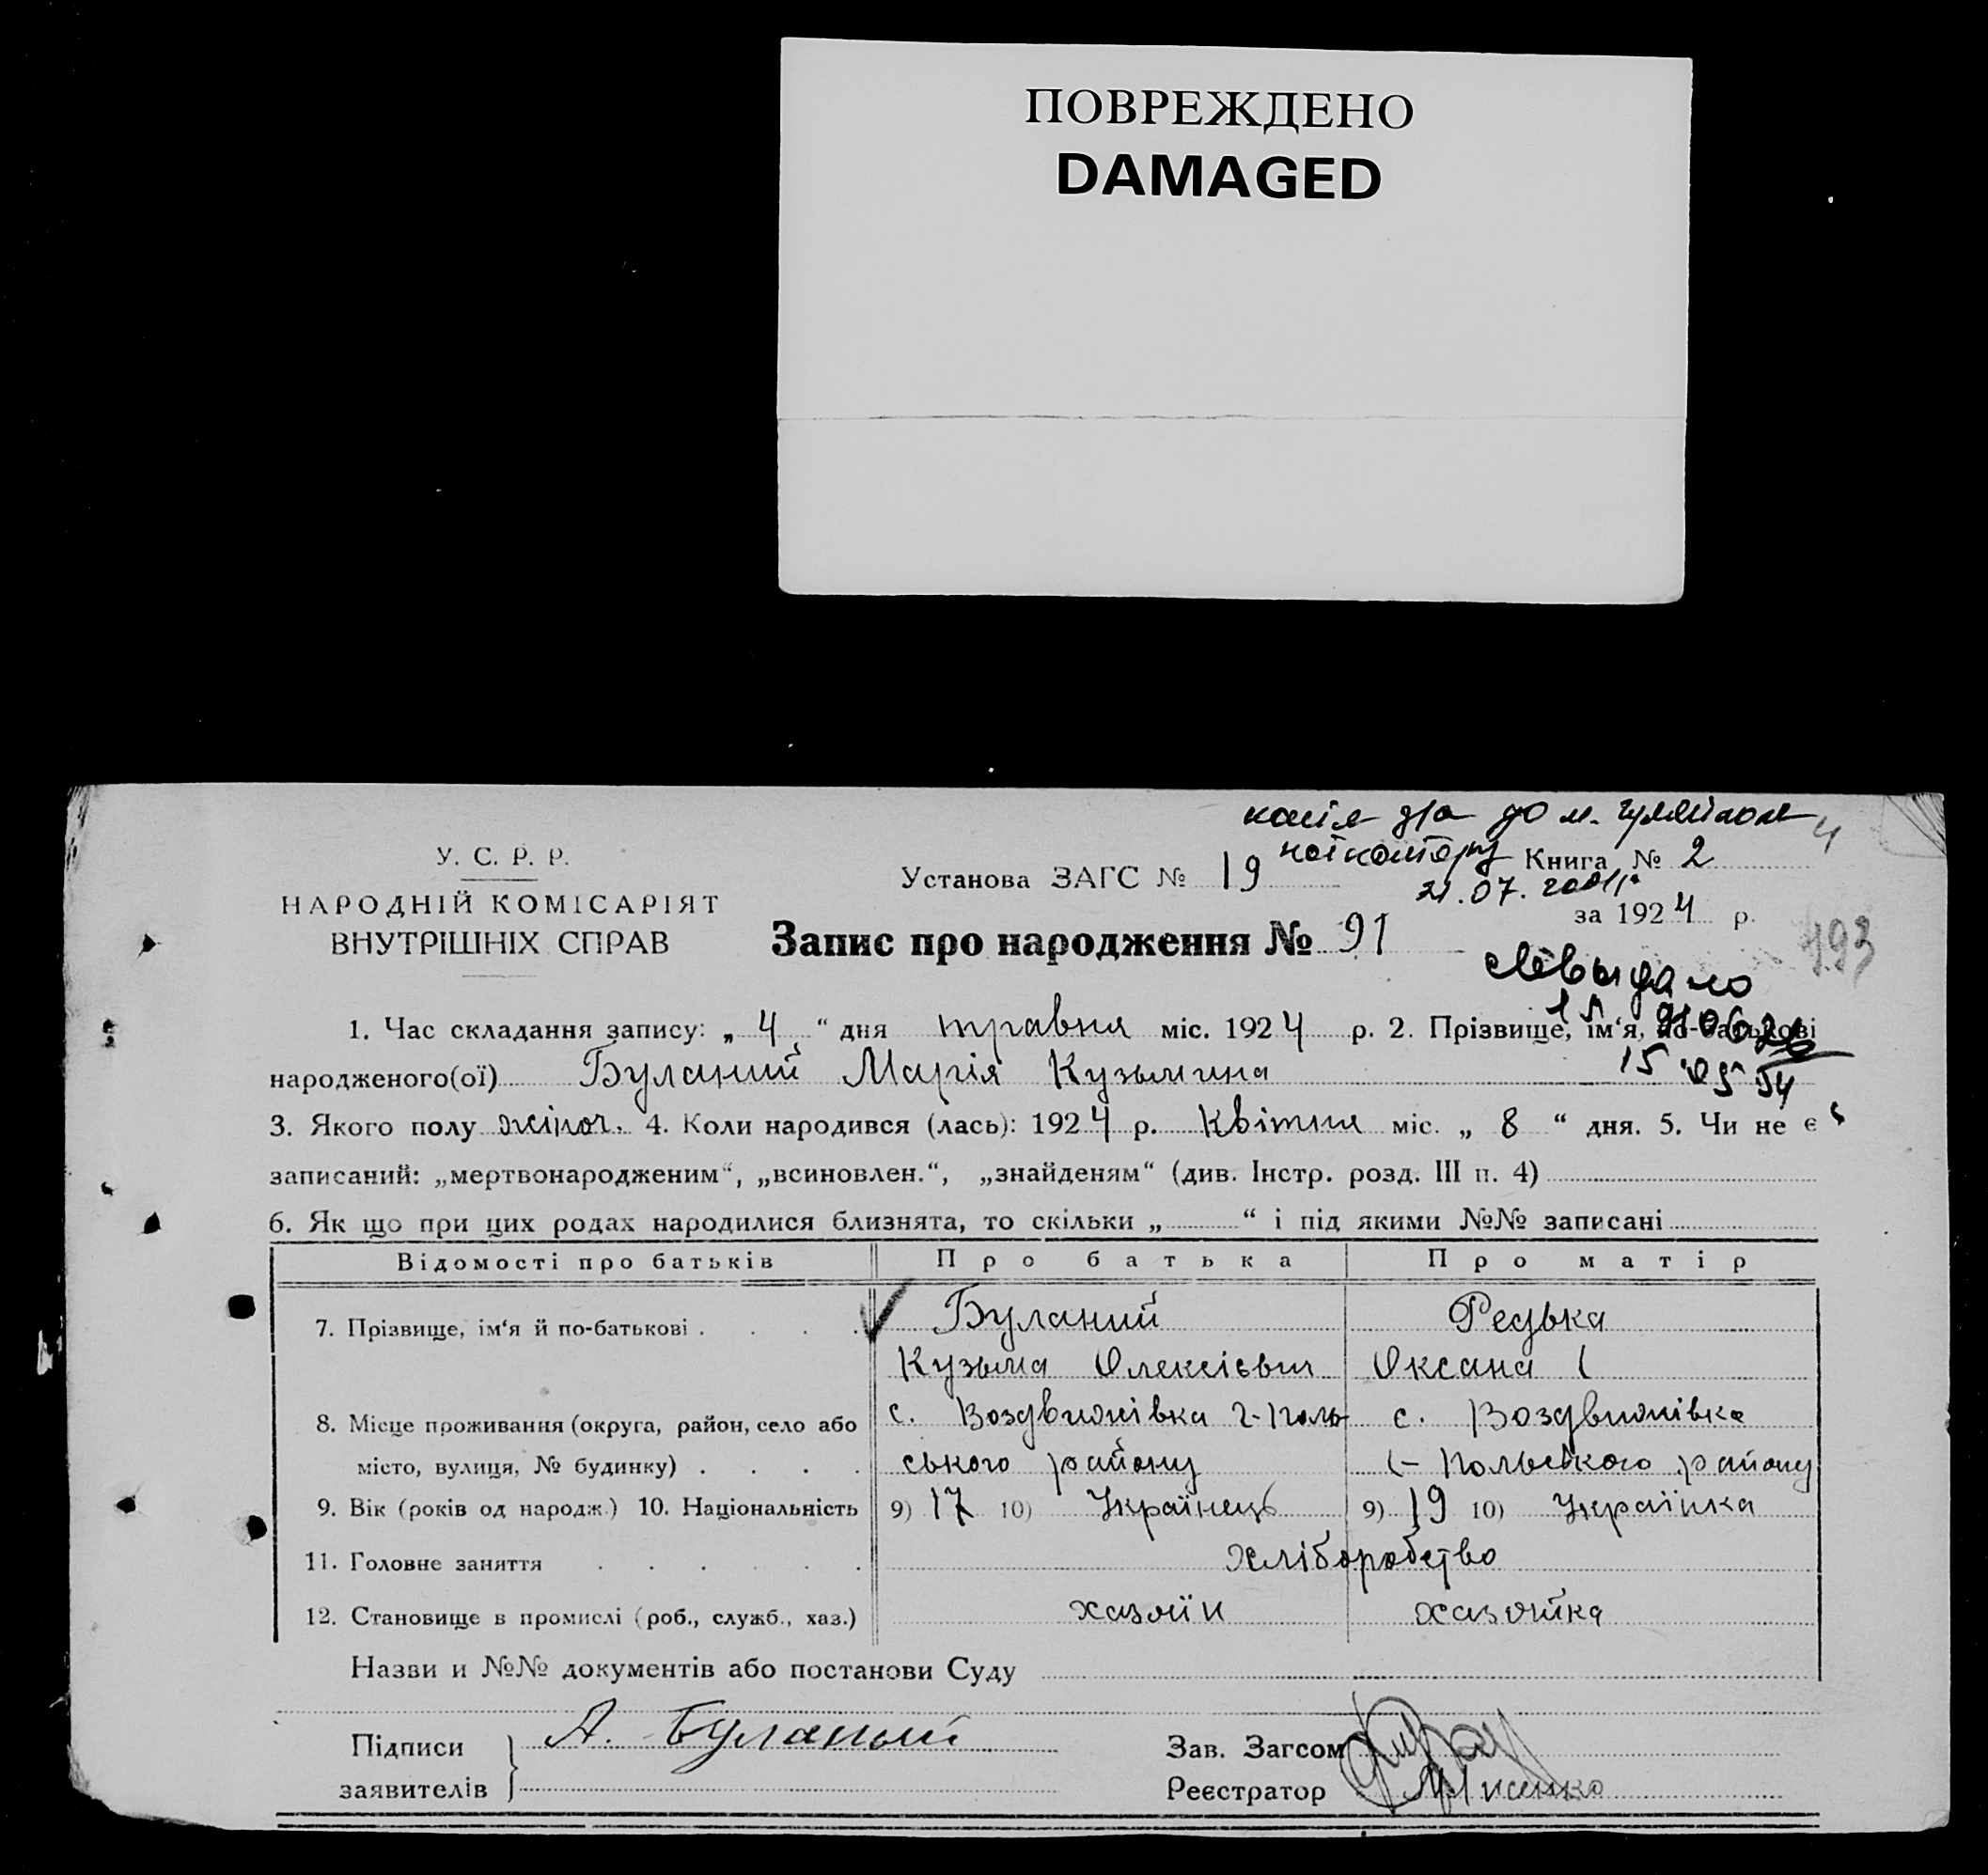 ПОВРЕЖДЕНО
DAMAGED
копія д/а до м. Гуляйполе
У. С. Р. Р.
Установа ЗАГС № 19 Книга № 2 4
НАРОДНІЙ КОМІСАРІЯТ
21.07.
за 1924 р.
ВНУТРІШНІХ СПРАВ
Запис про народження № 91
493
1. Час складання запису: „ 4 “ дня травня міс. 1924 р. 2. Прізвище, ім‘я, по-батькові
народженого(ої) Буланий Марія Кузьмина
15 05 54
3. Якого полу жіноч. 4. Коли народився (лась): 1924 р. Квітня міс. „ 8 “ дня. 5. Чи не є
записаний: „мертвонародженим“, „всиновлен.“, „знайденям“ (див. Інстр. розд. III п. 4)
6. Як що при цих родах народилися близнята, то скільки „ “ і під якими №№ записані
Відомості про батьків Про батька Про матір
7. Прізвище, ім‘я й по-батькові . . . . Буланий Редька
Кузьма Олексієвич Оксана
8. Місце проживання (округа, район, село або с. Воздвижнівка Г-Поль- с. Воздвижнівка
місто, вулиця, № будинку) . . . . ського району Г- Польського району
9. Вік (років од народж.) 10. Національність 9) 17 10) Українець 9) 19 10) Українка
11. Головне заняття . . . . . . хліборобство
12. Становище в промислі (роб., служб., хаз.) хазяїн хазяйка
Назви и №№ документів або постанови Суду
Підписи А. Буланый Зав. Загсом
заявителів Реєстратор